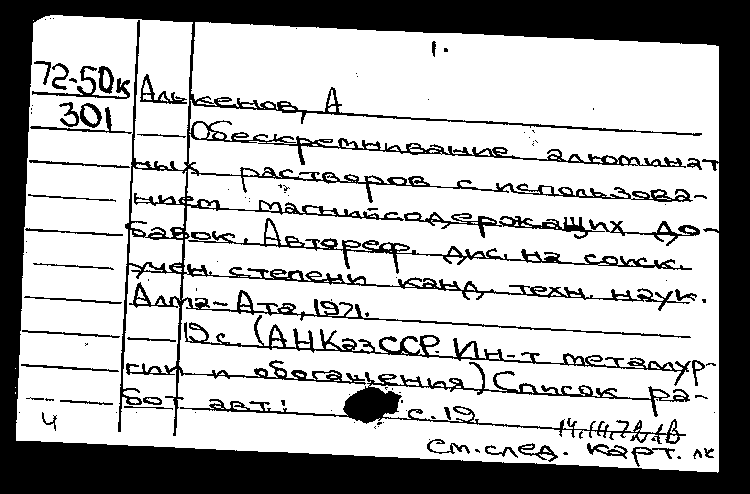 1.
72-50к
301
Алькенов, А
Обескремнивание алюминат
ных растворов с использова-
нием магнийсодержащих до-
бавок. Автореф. дис. на соиск.
учен. степени канд. техн. наук.
Алма-Ата, 1971.
19с. (АН КазССР. Ин-т металлур-
гии и обогащения) Список ра-
бот авт.: с. 19.
ч
см. след. карт. лк